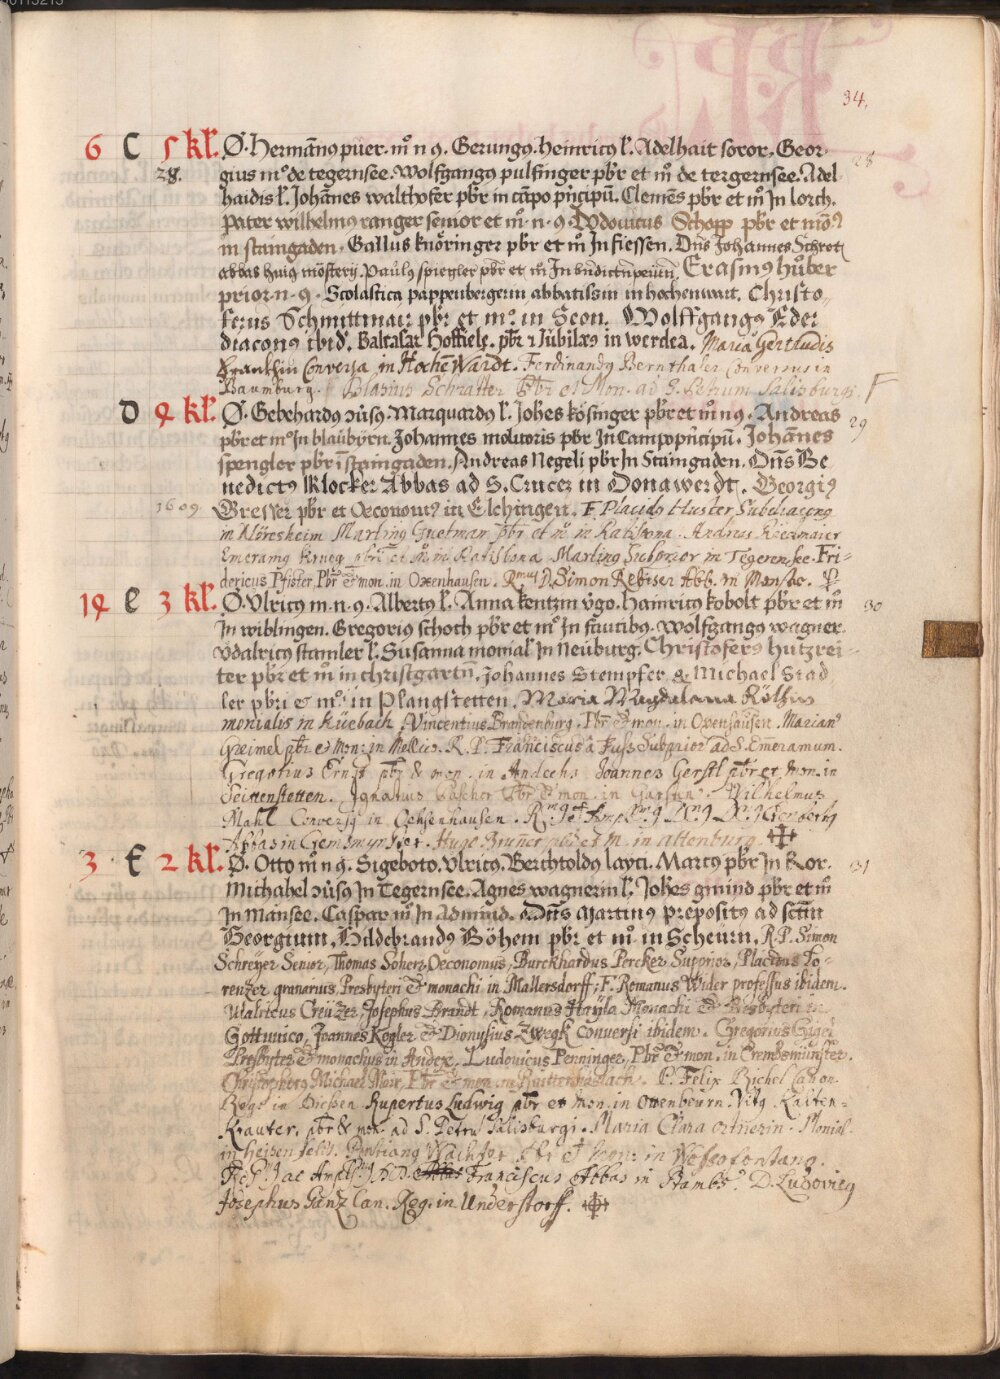 34.
6 C 5 kl. Ø. Hermañ9 puer. m̊ n 9. Gerung9. heinric9 l'. Adelhait soror. Geor-
28. gius m° de tegernsee. Wolfgang9 pulfinger pb̄r et m̊ de tergernsee. Adel
haidis l'. Johañes walthofer pb̄r in cāpo pn̄cipū. Clemēs pb̄r et m̊ Jn lorch.
pater wilhelm9 ranger senior et m̊. n. 9. Vdouicus Schopp pb̄r et mō9
in staingaden. Gallus knöringer pb̄r et m̊ Jn fiessen. Dn̄s Johannes Schrot
abbas hui9 mōsterij. Paul9 spiegler pb̄r et m̊ Jn Bn̄dictn̄peurn̄. Erasm9 hůber
prior. n. 9. Scolastica pappenbergerin abbatissin in hochenwart. Christo-
ferus Schmittmair pb̄r. et m°. in Seon. Wolffgang9 Eder
diacon9 ibid'. Baltasar Hoffiele. pb̄r ⁊ Jubilæ9 in werdea. Maria Gertrudis
Franckin Conversa in HochēWardt. Ferdinand9 Bernthaler Conversus in
Baumburg. Blasius Schratter Pb̄r et Mon. ad S. Petrum Salisburgi.
D 4 kl. Ø. Gebehard9 ɔ̄us9. Marquard9 l'. Joh̄es kösinger pb̄r et m̊ n 9. Andreas 29
pb̄r et m° Jn blaübyrn. Johannes molitoris pb̄r Jn Campopn̄cipū. Johan̄es
spengler pb̄r ī staingaden. Andreas Negeli pb̄r Jn Staingaden. Dn̄s Be
nedict9 Klocker Abbas ad S. Crucez in Donawerdt. Georgi9
1609 Gresser pb̄r et Oeconom9 in Elchingen. F. Placid9 Huster Subdiacon9
in Nöresheim Martin9 Guetman pb̄r et m° in Ratisbona. Andreas Reedmaier
Emeram9 Krueg pb̄r et m° in Ratisbona. Martin9 in Tegerensee. Fri-
dericus Pfister, Pb̄r & mon. in Oxenhausen. Rmus D. Simon Rebiser Abb. in Monsee.
14 E 3 kl. Ø. Vlric9 m. n. 9. Albert9 l'. Anna kentzin v̊go. Hainric9 kobolt pb̄r et m̊ 30
Jn wiblingen. Gregori9 schoch pb̄r et m° Jn faucib9. Wolfgang9 wagner.
Vdalric9 stamler l'. Susanna monial' Jn Neuburg. Christofer9 hutzrei-
ter pb̄r et m̊ in christgartn̄. Johannes Stempfer & Michael Stad
ler pb̄ri & m°. in Plangstetten. Maria Magdalana Röthin
monialis in Küebach. Vincentius Brandenburg. Pb̄r & mon. in Oxenhausen. Marian9
Gremel pb̄r & Mon: in Mellico. R. P. Franciscus à Fuss Subprior ad S. Emmeramum.
Gregorius Ernst pb̄r & mon. in Andechs Joannes Gerstl pb̄r et Mon. in
Seittenstetten. Ignatius Pascher Pb̄r & mon. in Garsten. Wilhelmus
Mahl Convers9 in Ochsenhausen.
Abbas in Hugo Bruner pb̄r et M. in altenburg.
3 F 2 kl. Ø. Otto m̊ n 9. Sigeboto. Vlric9. Berchtold9 layci. Marc9 pb̄r Jn Ror. 31
Michahel ɔ̄us9 Jn Tegernsee. Agnes wagnerin l'. Joh̄es gmünd pb̄r et m̊
Jn Mänsee. Caspar m̊ Jn Admünd. Dn̄s Martin9 preposit9 ad sctm̄
Georgium. Hildebrand9 Böhem pb̄r et m°. in Scheurn. R. P. Simon
Schreyer Senior, Thomas Scherz Oeconomus, Burckhardus Percker Supprior, Placidus Lo-
renzer granarius, Presbyteri & monachi in Mallersdorff; F. Romanus Wider professus ibidem.
Udalricus Creüzer, Josephus Brandt, Romanus Hayla Monachi & Presbyteri in
Gottwico, Joannes Kogler & Dionysius Zwegk conversi ibidem. Gregorius Gigel
Presbyter & monachus in Andex. Ludouicus Penninger, Pb̄r & mon. in Crembsmünster.
Christophor9 Michael Mair, Pb̄r & mon. in Raittenhaslach. P. Felix Bichel Canon.
Reg. in Diessen. Rupertus Ludwig pb̄r et Mon. in Ottenbeurn. Vit9 Kaiten-
Krauter. pb̄r & mon. ad S. Petru Salisburgi. Maria Clara Ortnerin. Monial.
in Pontian9 Wachter Pb̄r & Mon: in Wessofontano.
Franciscus Abbas in Bamb9. D. Ludovic9
Josephus Gänz Can. Reg. in Understorff.